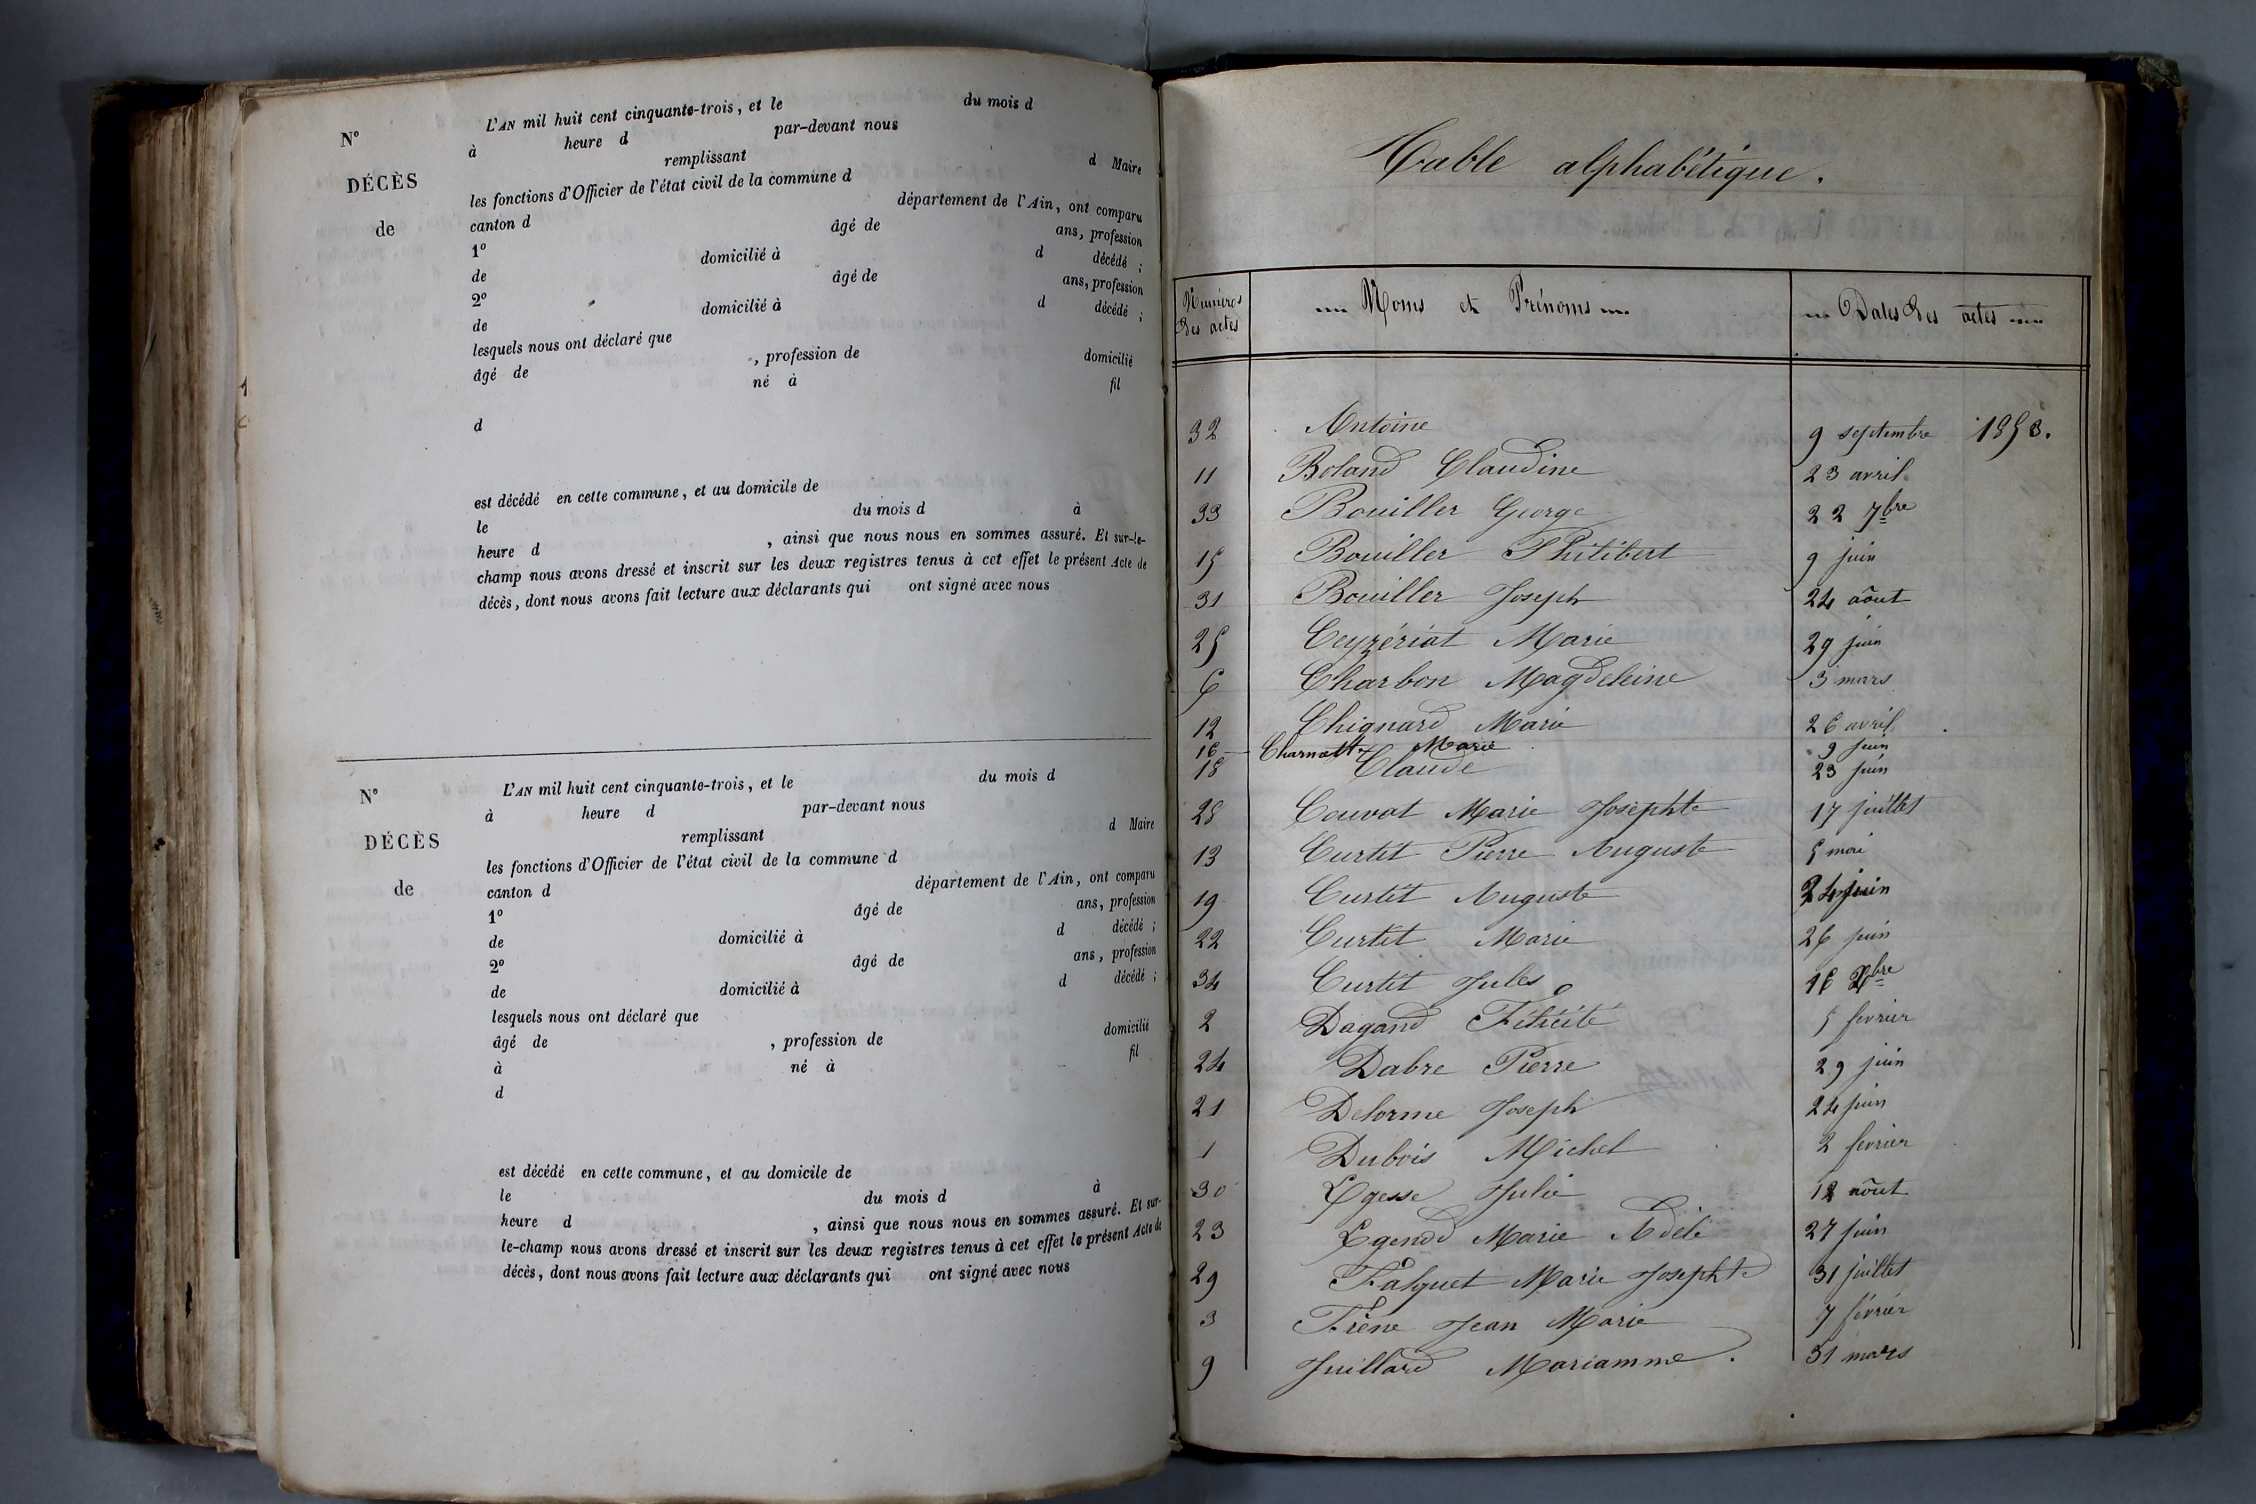 N° L'AN mil huit cent cinquante-trois, et le du mois d
à heure d par-devant nous
DÉCÈS remplissant d Maire
les fonctions d'Officier de l'état civil de la commune d
de canton d département de l'Ain, ont comparu
1° âgé de ans, profession
de domicilié à d décédé ;
2° âgé de ans, profession
de domicilié à d décédé ;
lesquels nous ont déclaré que
âgé de , profession de domicilié
né à fil
d
est décédé en cette commune, et au domicile de
le du mois d à
heure d , ainsi que nous nous en sommes assuré. Et sur-le-
champ nous avons dressé et inscrit sur les deux registres tenus à cet effet le présent Acte de
décès, dont nous avons fait lecture aux déclarants qui ont signé avec nous
N° L'AN mil huit cent cinquante-trois, et le du mois d
à heure d par-devant nous
DÉCÈS remplissant d Maire
les fonctions d'Officier de l'état civil de la commune d
de canton d département de l'Ain, ont comparu
1° âgé de ans, profession
de domicilié à d décédé ;
2° âgé de ans, profession
de domicilié à d décédé ;
lesquels nous ont déclaré que
âgé de , profession de domicilié
à né à fil
d
est décédé en cette commune, et au domicile de
le du mois d à
heure d , ainsi que nous nous en sommes assuré. Et sur-
le-champ nous avons dressé et inscrit sur les deux registres tenus à cet effet le présent Acte de
décès, dont nous avons fait lecture aux déclarants qui ont signé avec nous
Table alphabétique.
Numéros des actes Noms et Prénoms Dates des actes
32 Antoine 9 septembre 1853.
11 Boland Claudine 23 avril
33 Bouiller George 22 7bre
15 Bouiller Philibert 9 juin
31 Bouiller Joseph 24 août
25 Ceyzériat Marie 29 juin
6 Charbon Magdeleine 3 mars
12 Chignard Marie 26 avril
16 Marie 9 juin
18 Claude 23 juin
28 Couvat Marie Josephte 17 juillet
13 Curtet Pierre Auguste 5 mai
19 Curtet Auguste 24 juin
22 Curtet Marie 26 juin
34 Curtet Jules 16
2 Dagand Félicité 5 fevrier
24 Dabre Pierre 29 juin
21 Delorme Joseph 24 juin
1 Dubois Michel 2 fevrier
30 Egesse Julie 12 août
23 Egend Marie Adele 27 juin
29 Falquet Marie Josephte 31 juillet
3 Frène Jean Marie 7 février
9 Juillard Mariamme. 31 mars